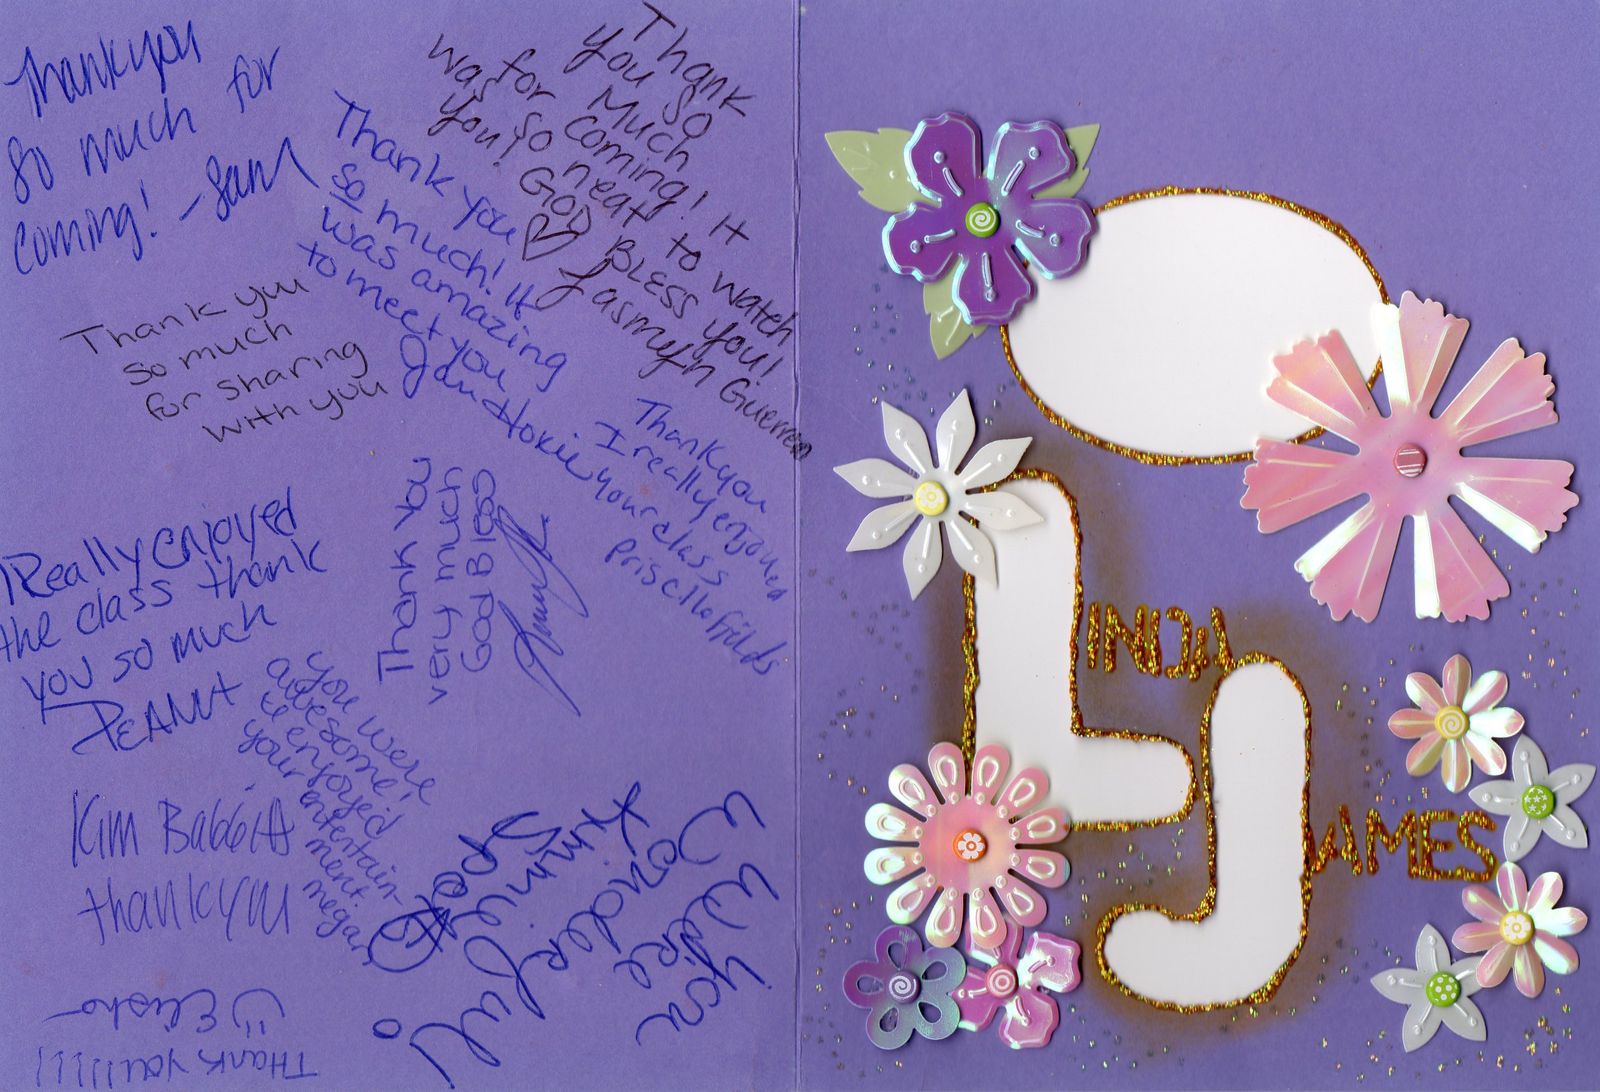 Thankyou
so much for
coming! -Sam
Thank you
so much
for sharing
with you
Thank you
so much! It
was amazing
to meet you
Thank
you so
Much
for coming! It
was so neat to watch
you! God BLESS you!
Jasmeyn
Thankyou
I really enjoyed
your class
priscilla ffilds
I Really enjoyed
the class thank
you so much
PEANUt
Thank You
very much
God Bless
you were
awesome!
enjoyed
your entertain-
ment.
megan
Kim Babbitt
thankyou
You Were
Wonderful!
Spot
Elisha
THank you!!!!!!
LINDA
JAMES